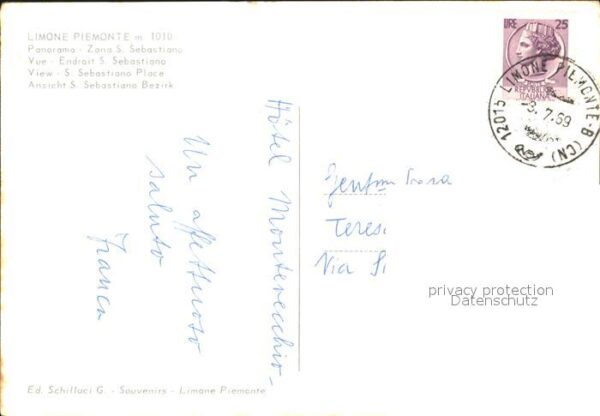 LIMONE PIEMONTE m. 1010
Panorama - Zona S. Sebastiano
Vue - Endroit S. Sebastiano
View - S. Sebastiano Place
Ansicht S. Sebastiano Bezirk
LIRE 25
REPVBBLICA
ITALIANA
12015 LIMONE PIEMONTE-B (CN)
-8. 7.69
Hôtel Montevecchio-
Un affettuoso
saluto
Franca
Rosa
Teresi
Via S.
privacy protection
Datenschutz
Ed. Schilluci G. - Souvenirs - Limone Piemonte